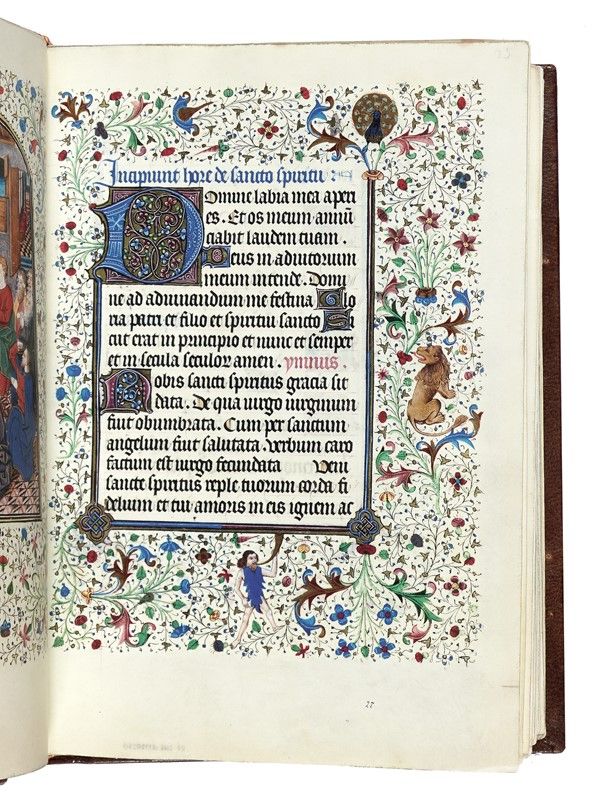 Incipiunt hore de sancto spiritu :
Domine labia mea aperi
es . Et os meum annū
ciabit laudem tuam .
Deus in adiutorium
meum intende . Domi
ne ad adiuuandum me festina Glo
ria patri et filio et spiritui sancto S
icut erat in principio et nunc et semper
et in secula seculoꝝ amen . ymnus .
Nobis sancti spiritus gracia sit
data . De qua uirgo uirginum
fuit obumbrata . Cum per sanctum
angelum fuit salutata . Verbum caro
factum est uirgo fecundata Veni
sancte spiritus reple tuorum corda fi
delium et tui amoris in eis ignem ac
22